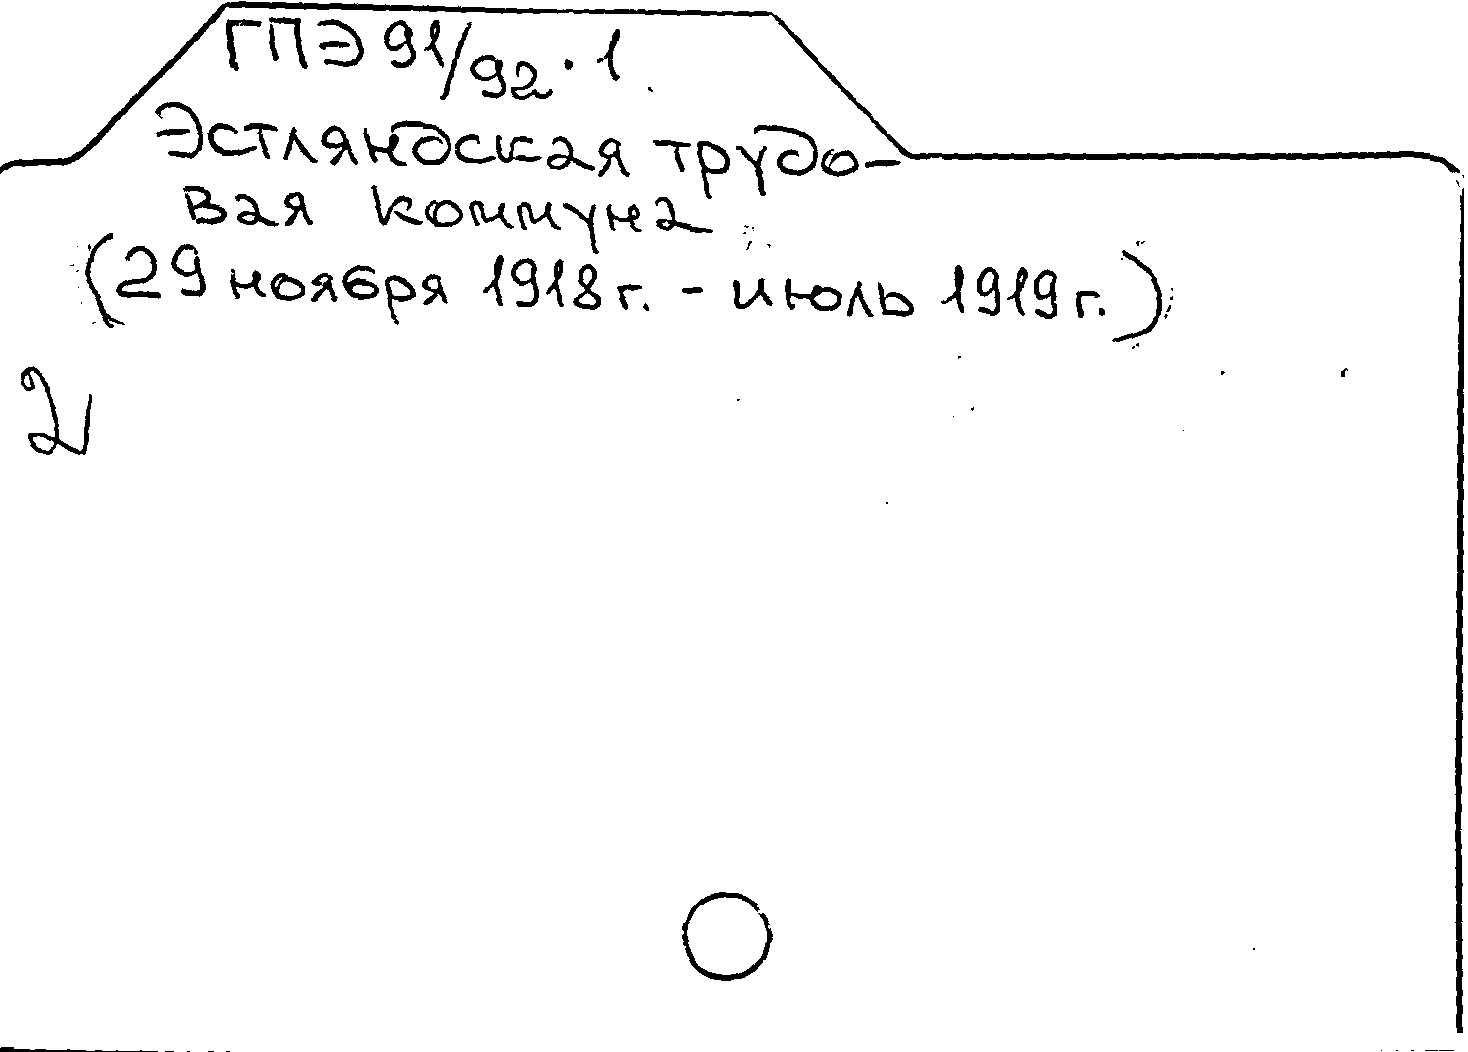 ГПЭ 91/92 · 1
Эстляндская трудо-
вая коммуна
(29 ноября 1918 г. - июль 1919 г.)